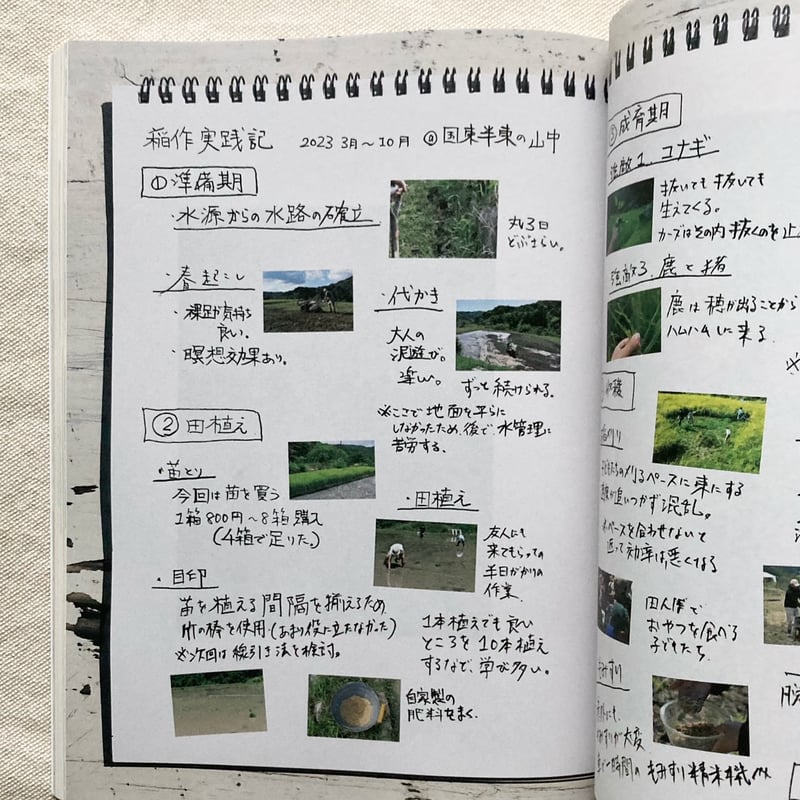 稲作実践記 2023 3月～10月 @国東半東の山中
①準備期
・水源からの水路の確立
丸3日
どぶさらい。
・春起こし
・裸足が気持ち
良い。
・瞑想効果あり。
・代かき
大人の
泥遊び。
楽しい。
ずっと続けられる。
※ここで地面を平らに
しなかったため、後で、水管理に
苦労する。
②田植え
・苗とり
今回は苗を買う
1箱800円～8箱購入
(4箱で足りた。)
・田植え
友人にも
来てもらっての
半日がかりの
作業。
・目印
苗を植える間隔を揃えるため
竹の棒を使用。(あまり役に立たなかった)
※次回は線引き法を検討。
1本植えでも良い
ところを10本植え
するなど、学が多い。
自家製の
肥料をまく。
③成育期
強敵1. コナギ
抜いても抜いても
生えてくる。
カーブはその内抜くのを止
強敵3. 鹿と猪
鹿は穂が出ることから
ハムハムしに来る。
刈るペースに束にする
追いつかず混乱。
ペースを合わせないと
返って効率は悪くなる
田んぼで
おやつを食べる
子どもたち。
もみすり
が大変
時間の もみすり精米機